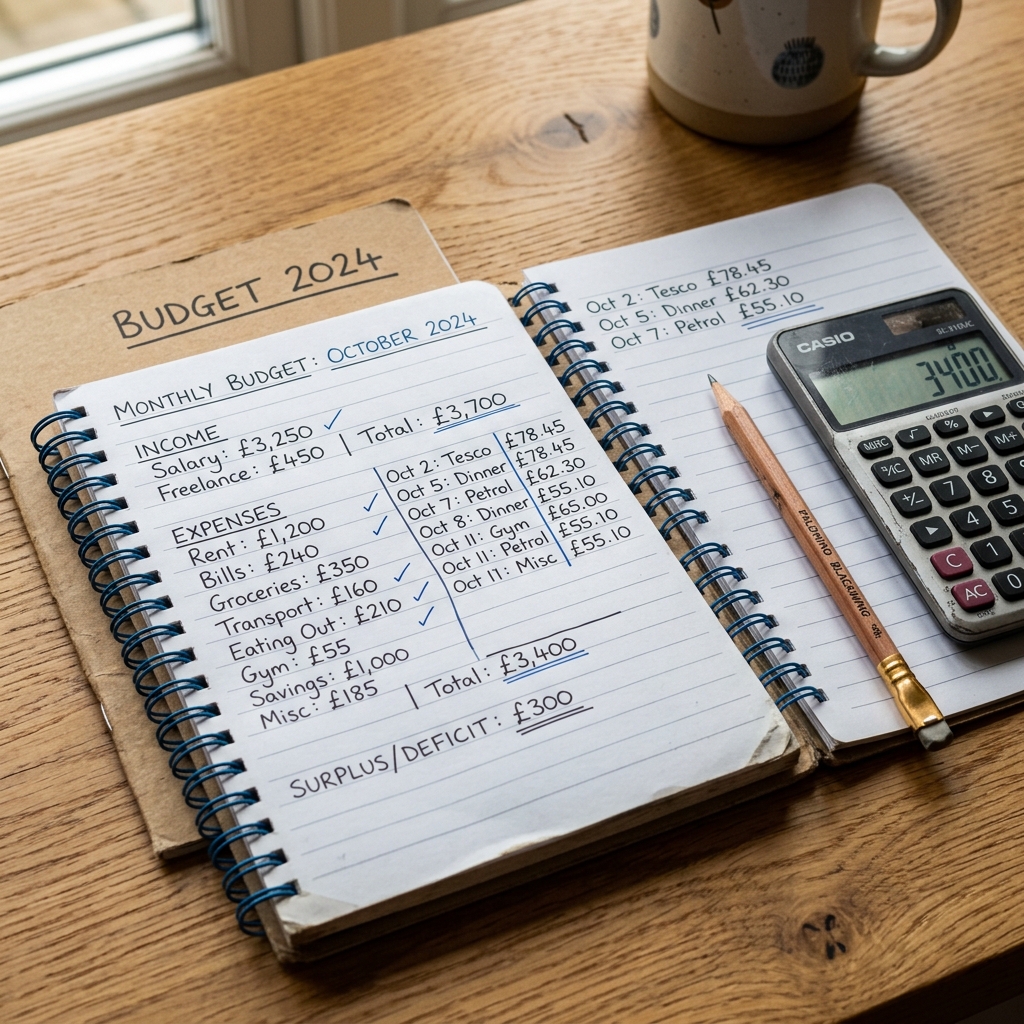 BUDGET 2024
MONTHLY BUDGET: OCTOBER 2024
INCOME
Salary: £3,250 ✓
Freelance: £450
Total: £3,700
EXPENSES
Rent: £1,200 ✓
Bills: £240 ✓
Groceries: £350
Transport: £160 ✓
Eating Out: £210 ✓
Gym: £55
Savings: £1,000
Misc: £185
Oct 2: Tesco £78.45
Oct 5: Dinner £78.45
Oct 7: Petrol £62.30
Oct 8: Dinner £55.10
Oct 11: Gym £65.00
Oct 11: Petrol £55.10
Oct 11: Misc £55.10
Total: £3,400
SURPLUS/DEFICIT: £300
Oct 2: Tesco £78.45
Oct 5: Dinner £62.30
Oct 7: Petrol £55.10
CASIO
3400
MRC √ % ▶
MR M- M+
+/- 7 8
▶ 4 5
C 1
AC 0
PALOMINO